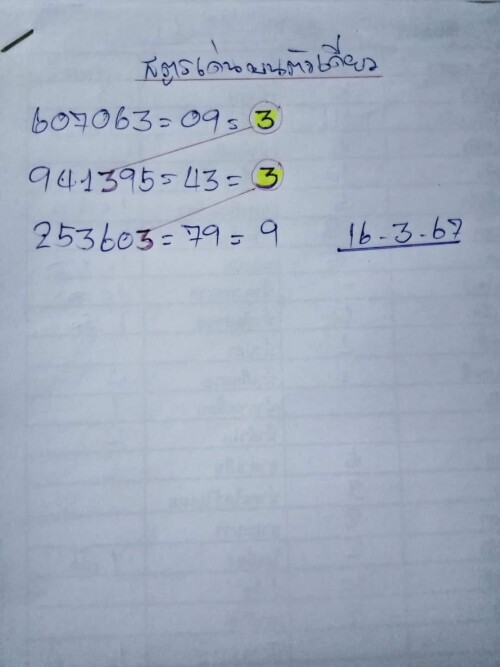 สูตรเด่นบนตัวเดียว
607063 = 09 = 3
941395 = 43 = 3
253603 = 79 = 9 16-3-67